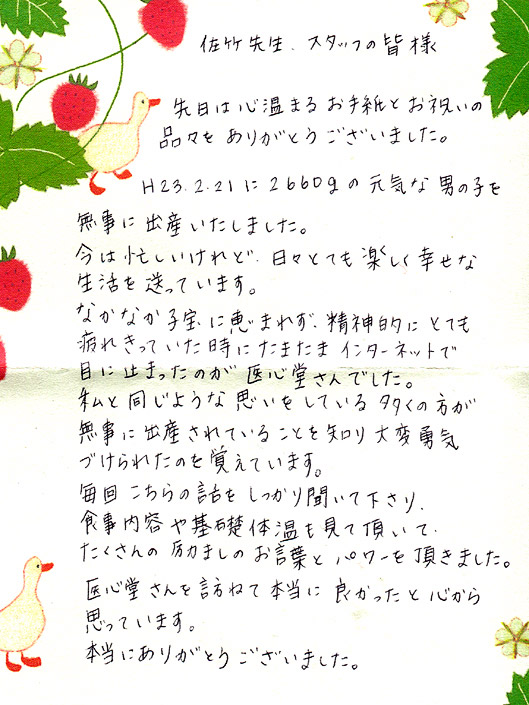 佐竹先生、スタッフの皆様
先日は心温まるお手紙とお祝いの
品々をありがとうございました。
H23.2.21に2660gの元気な男の子を
無事に出産いたしました。
今は忙しいけれど、日々とても楽しく幸せな
生活を送っています。
なかなか子宝に恵まれず、精神的にとても
疲れきっていた時にたまたまインターネットで
目に止まったのが医心堂さんでした。
私と同じような思いをしている多くの方が
無事に出産されていることを知り大変勇気
づけられたのを覚えています。
毎回こちらの話をしっかり聞いて下さり、
食事内容や基礎体温も見て頂いて、
たくさんの励ましのお言葉とパワーを頂きました。
医心堂さんを訪ねて本当に良かったと心から
思っています。
本当にありがとうございました。